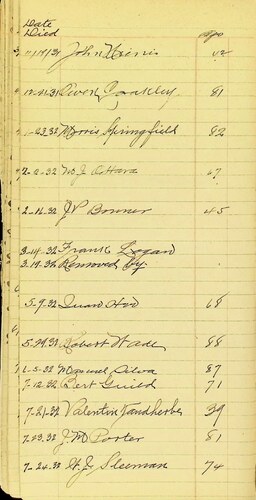 Date
Died age
11/17/31 John 42
12-21-31 Owen Coakley 81
1-23-32 Morris Springfield 82
2-2-32 M J O'Hara 67
2-16-32 J P Bonner 45
3-14-32 Frank Logan
3-19-32 Removed by
5-9-32 68
5-29-32 Robert Wade 88
6-5-32 Manuel Silva 87
7-12-32 Bert Guild 71
7-21-32 Valentin 39
7-23-32 J. M. Porter 81
7-24-32 W. J. Sleeman 74